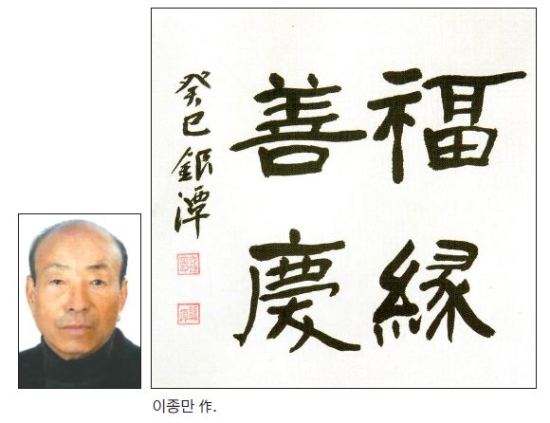 福緣
善慶
癸巳 銀潭
이종만 作.